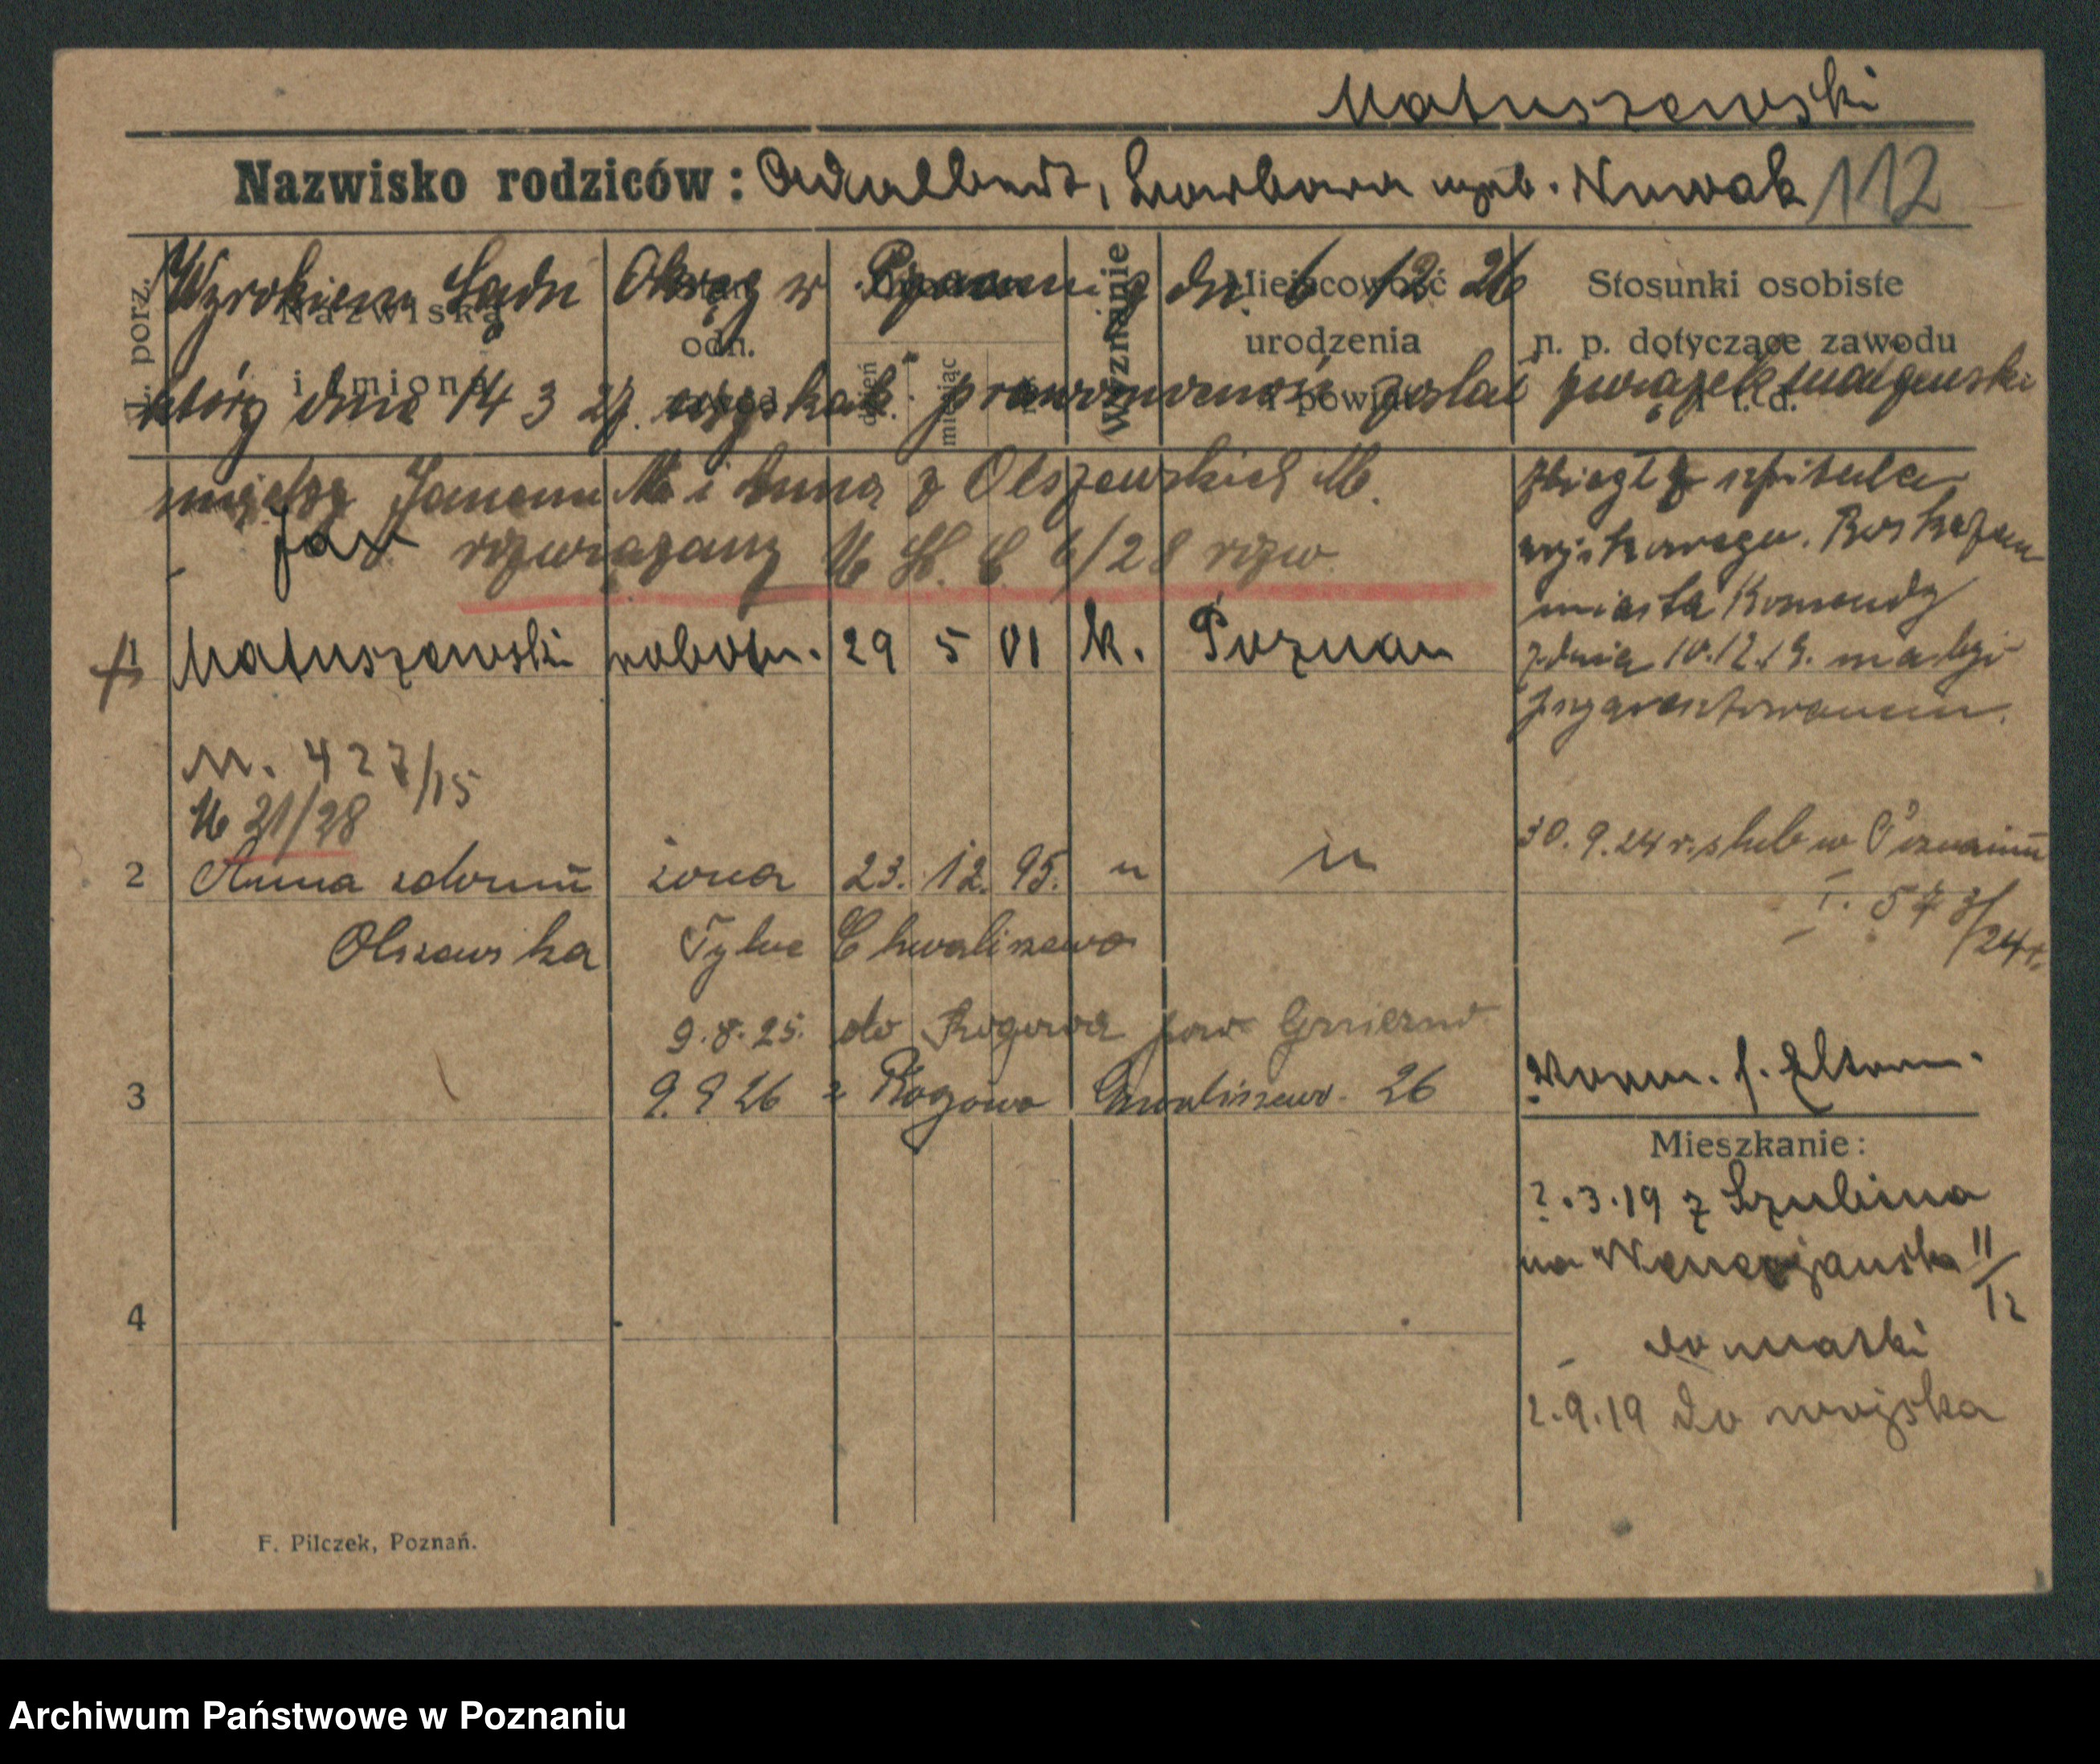 Matuszewski
Nazwisko rodziców: Adalbert, Barbara Nowak 112
L. porz.
Nazwiska
i imiona
Stan
odn.
dzień
miesiąc
Wyznanie
Miejscowość
urodzenia
i powiat
Stosunki osobiste
n. p. dotyczące zawodu
i t. d.
Wyrokiem Sądu Okręg w Poznaniu z dn. 6 12 26
który dnia 14 3 27 uzyskał prawomocność został związek małżeński
między Janem M. i Anną z Olszewskich M.
rozwiązany 6/28 rozw.
Jan
1 Matuszewski robotn. 29 5 01 k. Poznań
zbiegł z szpitala
wojskowego. Rozkazem
miasta Komendy
z dnia 10.12.19. ma być
zaaresztowanem.
M. 427/15
21/28
2 Anna z domu żona 23. 12. 95. " "
Olszewska
30.9.24 r. ślub w Poznaniu
I. 573/24 r.
Tylne Chwaliszewo
9.8.25. do Rogowa pow Gniezno
3 9.9 26 z Rogowa Chwaliszewo. 26
Mieszkanie:
2.3.19 z Szubina
na Wenecjańską 11/12
do matki
2.9.19 do wojska
4
F. Pilczek, Poznań.
Archiwum Państwowe w Poznaniu